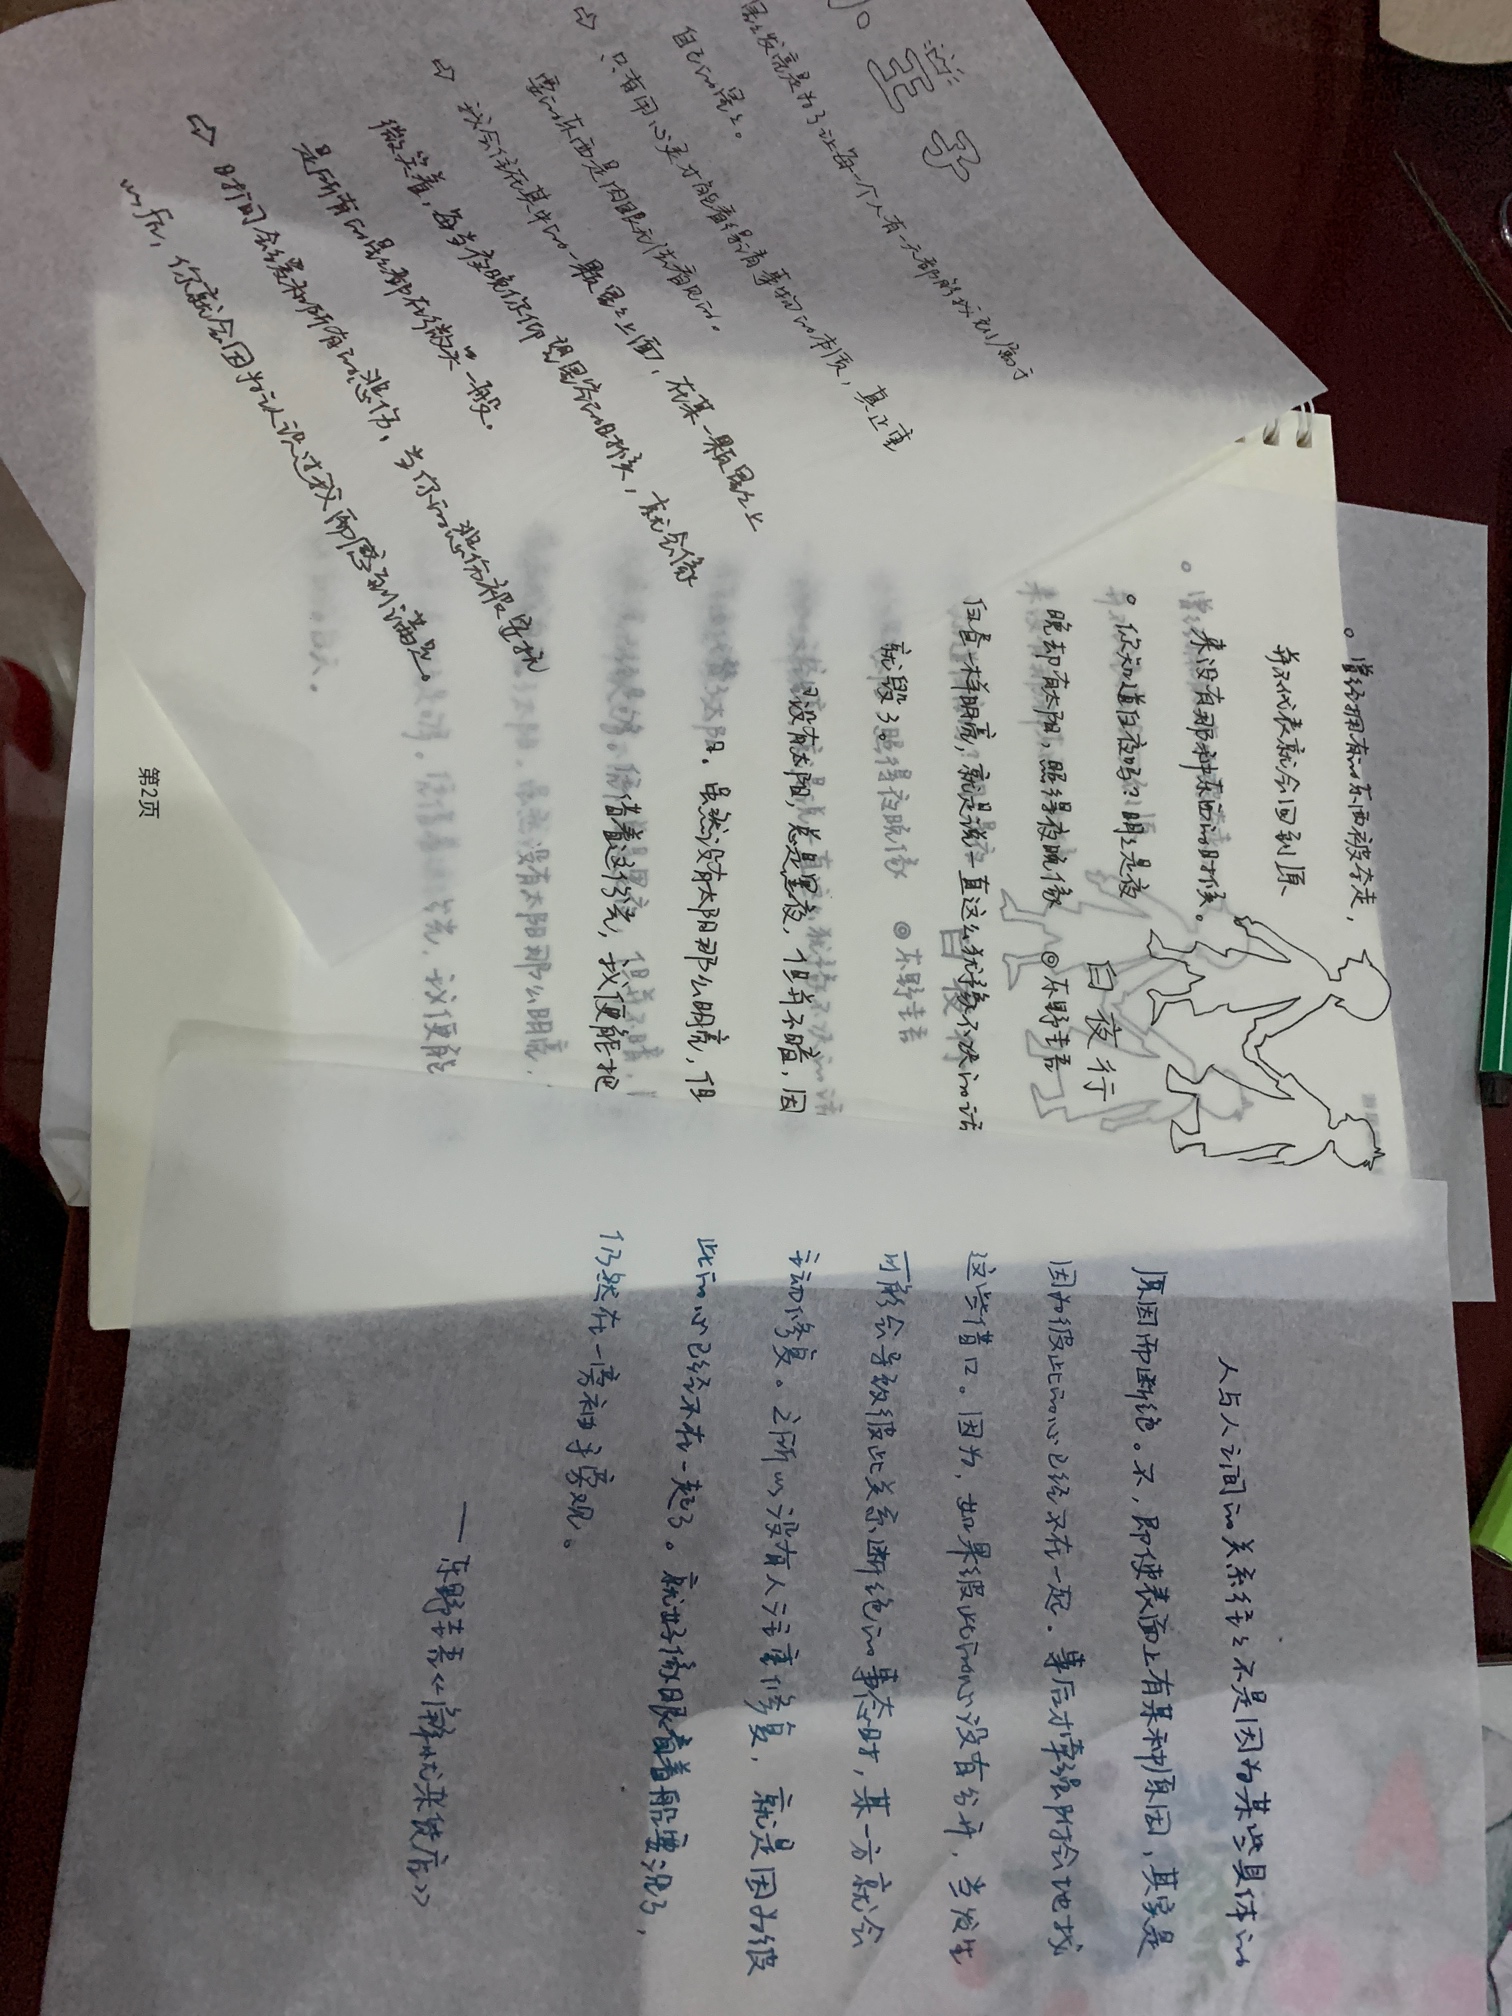 王子
星星发亮是为了让每一个人有一天都能找到属于
自己的星星。
只有用心灵才能看得清事物的本质，真正重
要的东西是肉眼无法看见的。
我会住在其中的一颗星星上面，在某一颗星星上
微笑着，每当夜晚你仰望星空的时候，就会像
是所有的星星都在微笑一般。
时间会缓和所有的悲伤，当你的悲伤被安抚
以后，你就会因为认识过我而感到满足。
曾经拥有的东西被夺走，
并不代表就会回到原
来没有那种东西的时候。
你知道白夜吗？明明是夜
晚却有太阳，照得夜晚像
白昼一样明亮，就是说一直这么犹豫不决的话
就毁了
没有太阳，总是黑夜，但并不暗，因
阳。虽然没有太阳那么明亮，但
借着这份光，我便能把
白夜行
@东野圭吾
第2页
人与人之间的关系往往不是因为某些具体的
原因而断绝。不，即使表面上有某种原因，其实是
因为彼此的心已经不在一起。事后才牵强附会地找
这些借口。因为，如果彼此的心没有分开，当发生
可能会导致彼此关系断绝的事态时，某一方就会
主动修复。之所以没有人主动修复，就是因为彼
此的心已经不在一起了。就好像眼看着船要沉了，
仍然在一旁袖手旁观。
——东野圭吾《解忧杂货店》